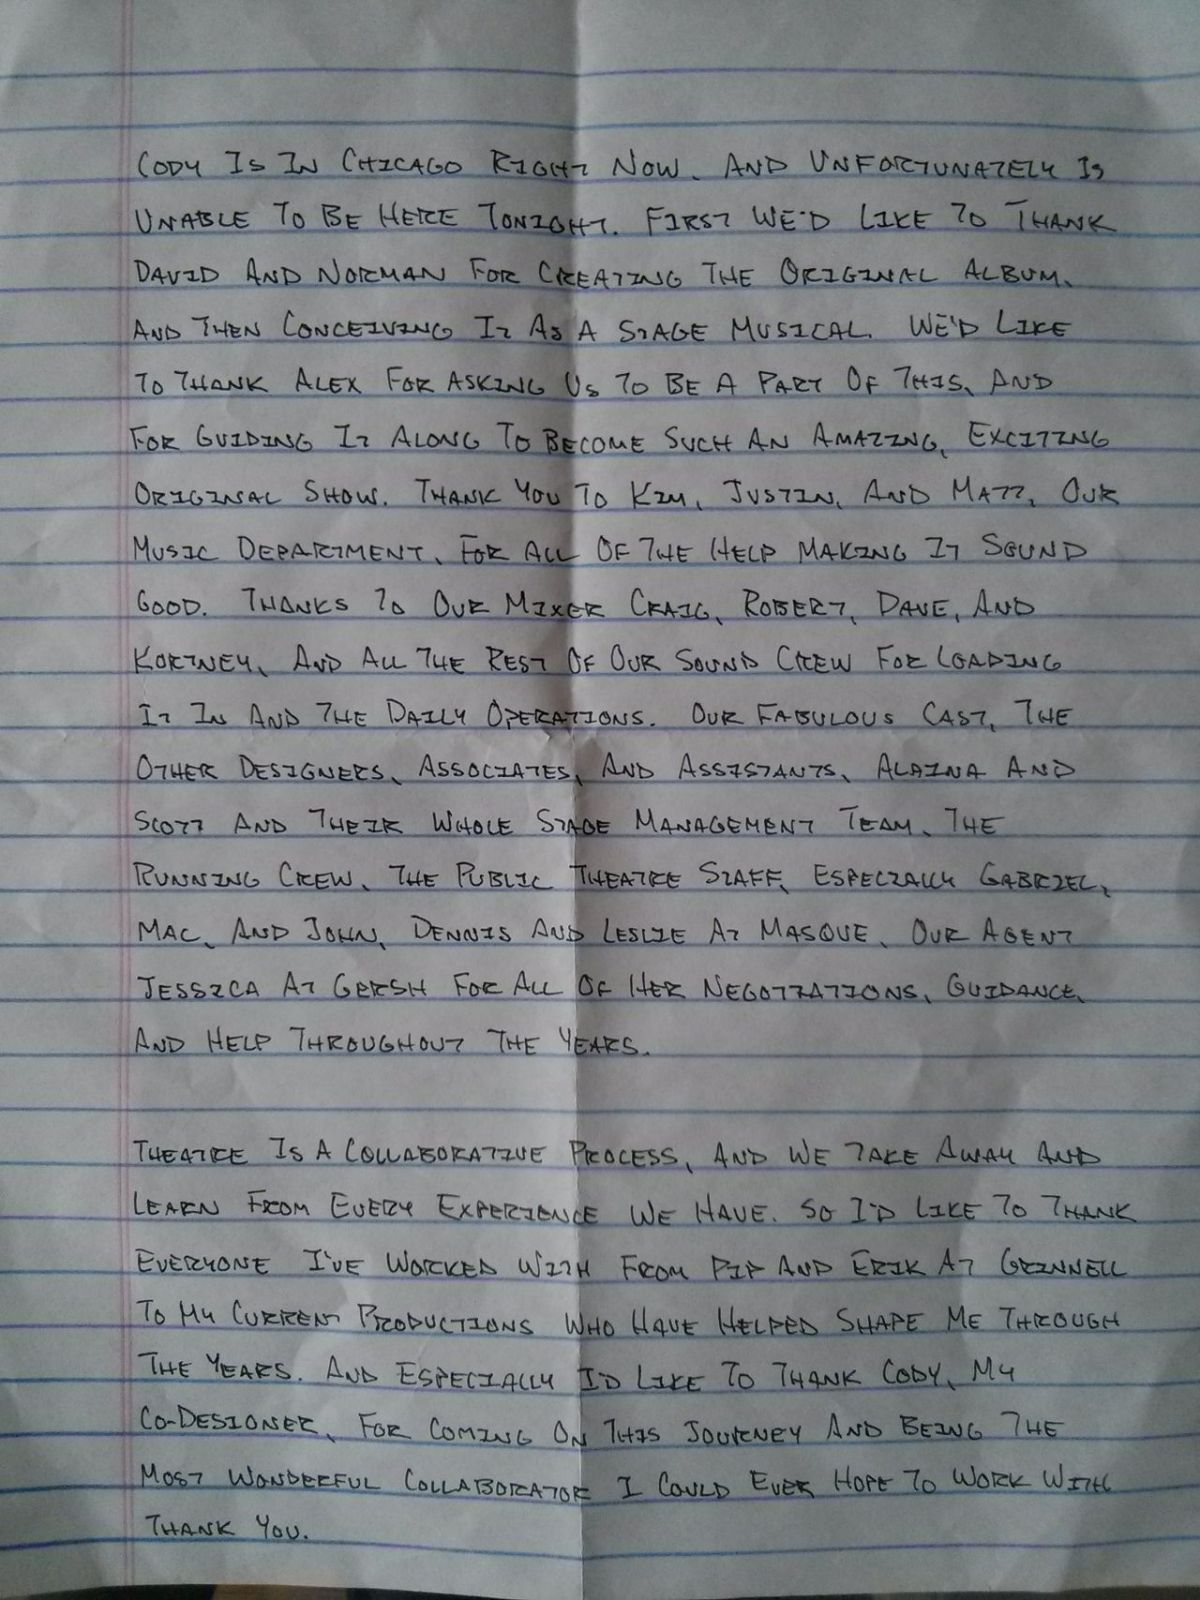 CODY IS IN CHICAGO RIGHT NOW, AND UNFORTUNATELY IS
UNABLE TO BE HERE TONIGHT. FIRST WE'D LIKE TO THANK
DAVID AND NORMAN FOR CREATING THE ORIGINAL ALBUM,
AND THEN CONCEIVING IT AS A STAGE MUSICAL. WE'D LIKE
TO THANK ALEX FOR ASKING US TO BE A PART OF THIS, AND
FOR GUIDING IT ALONG TO BECOME SUCH AN AMAZING, EXCITING
ORIGINAL SHOW. THANK YOU TO KIM, JUSTIN, AND MATT, OUR
MUSIC DEPARTMENT, FOR ALL OF THE HELP MAKING IT SOUND
GOOD. THANKS TO OUR MIXER CRAIG, ROBERT, DAVE, AND
KORTNEY, AND ALL THE REST OF OUR SOUND CREW FOR LOADING
IT IN AND THE DAILY OPERATIONS. OUR FABULOUS CAST, THE
OTHER DESIGNERS, ASSOCIATES, AND ASSISTANTS, ALAINA AND
SCOTT AND THEIR WHOLE STAGE MANAGEMENT TEAM, THE
RUNNING CREW, THE PUBLIC THEATRE STAFF, ESPECIALLY GABRIEL,
MAC, AND JOHN, DENNIS AND LESLIE AT MASQUE, OUR AGENT
JESSICA AT GERSH FOR ALL OF HER NEGOTIATIONS, GUIDANCE,
AND HELP THROUGHOUT THE YEARS.
THEATRE IS A COLLABORATIVE PROCESS, AND WE TAKE AWAY AND
LEARN FROM EVERY EXPERIENCE WE HAVE. SO I'D LIKE TO THANK
EVERYONE I'VE WORKED WITH FROM PIP AND ERIK AT GRINNELL
TO MY CURRENT PRODUCTIONS WHO HAVE HELPED SHAPE ME THROUGH
THE YEARS. AND ESPECIALLY I'D LIKE TO THANK CODY, MY
CO-DESIGNER, FOR COMING ON THIS JOURNEY AND BEING THE
MOST WONDERFUL COLLABORATOR I COULD EVER HOPE TO WORK WITH
THANK YOU.